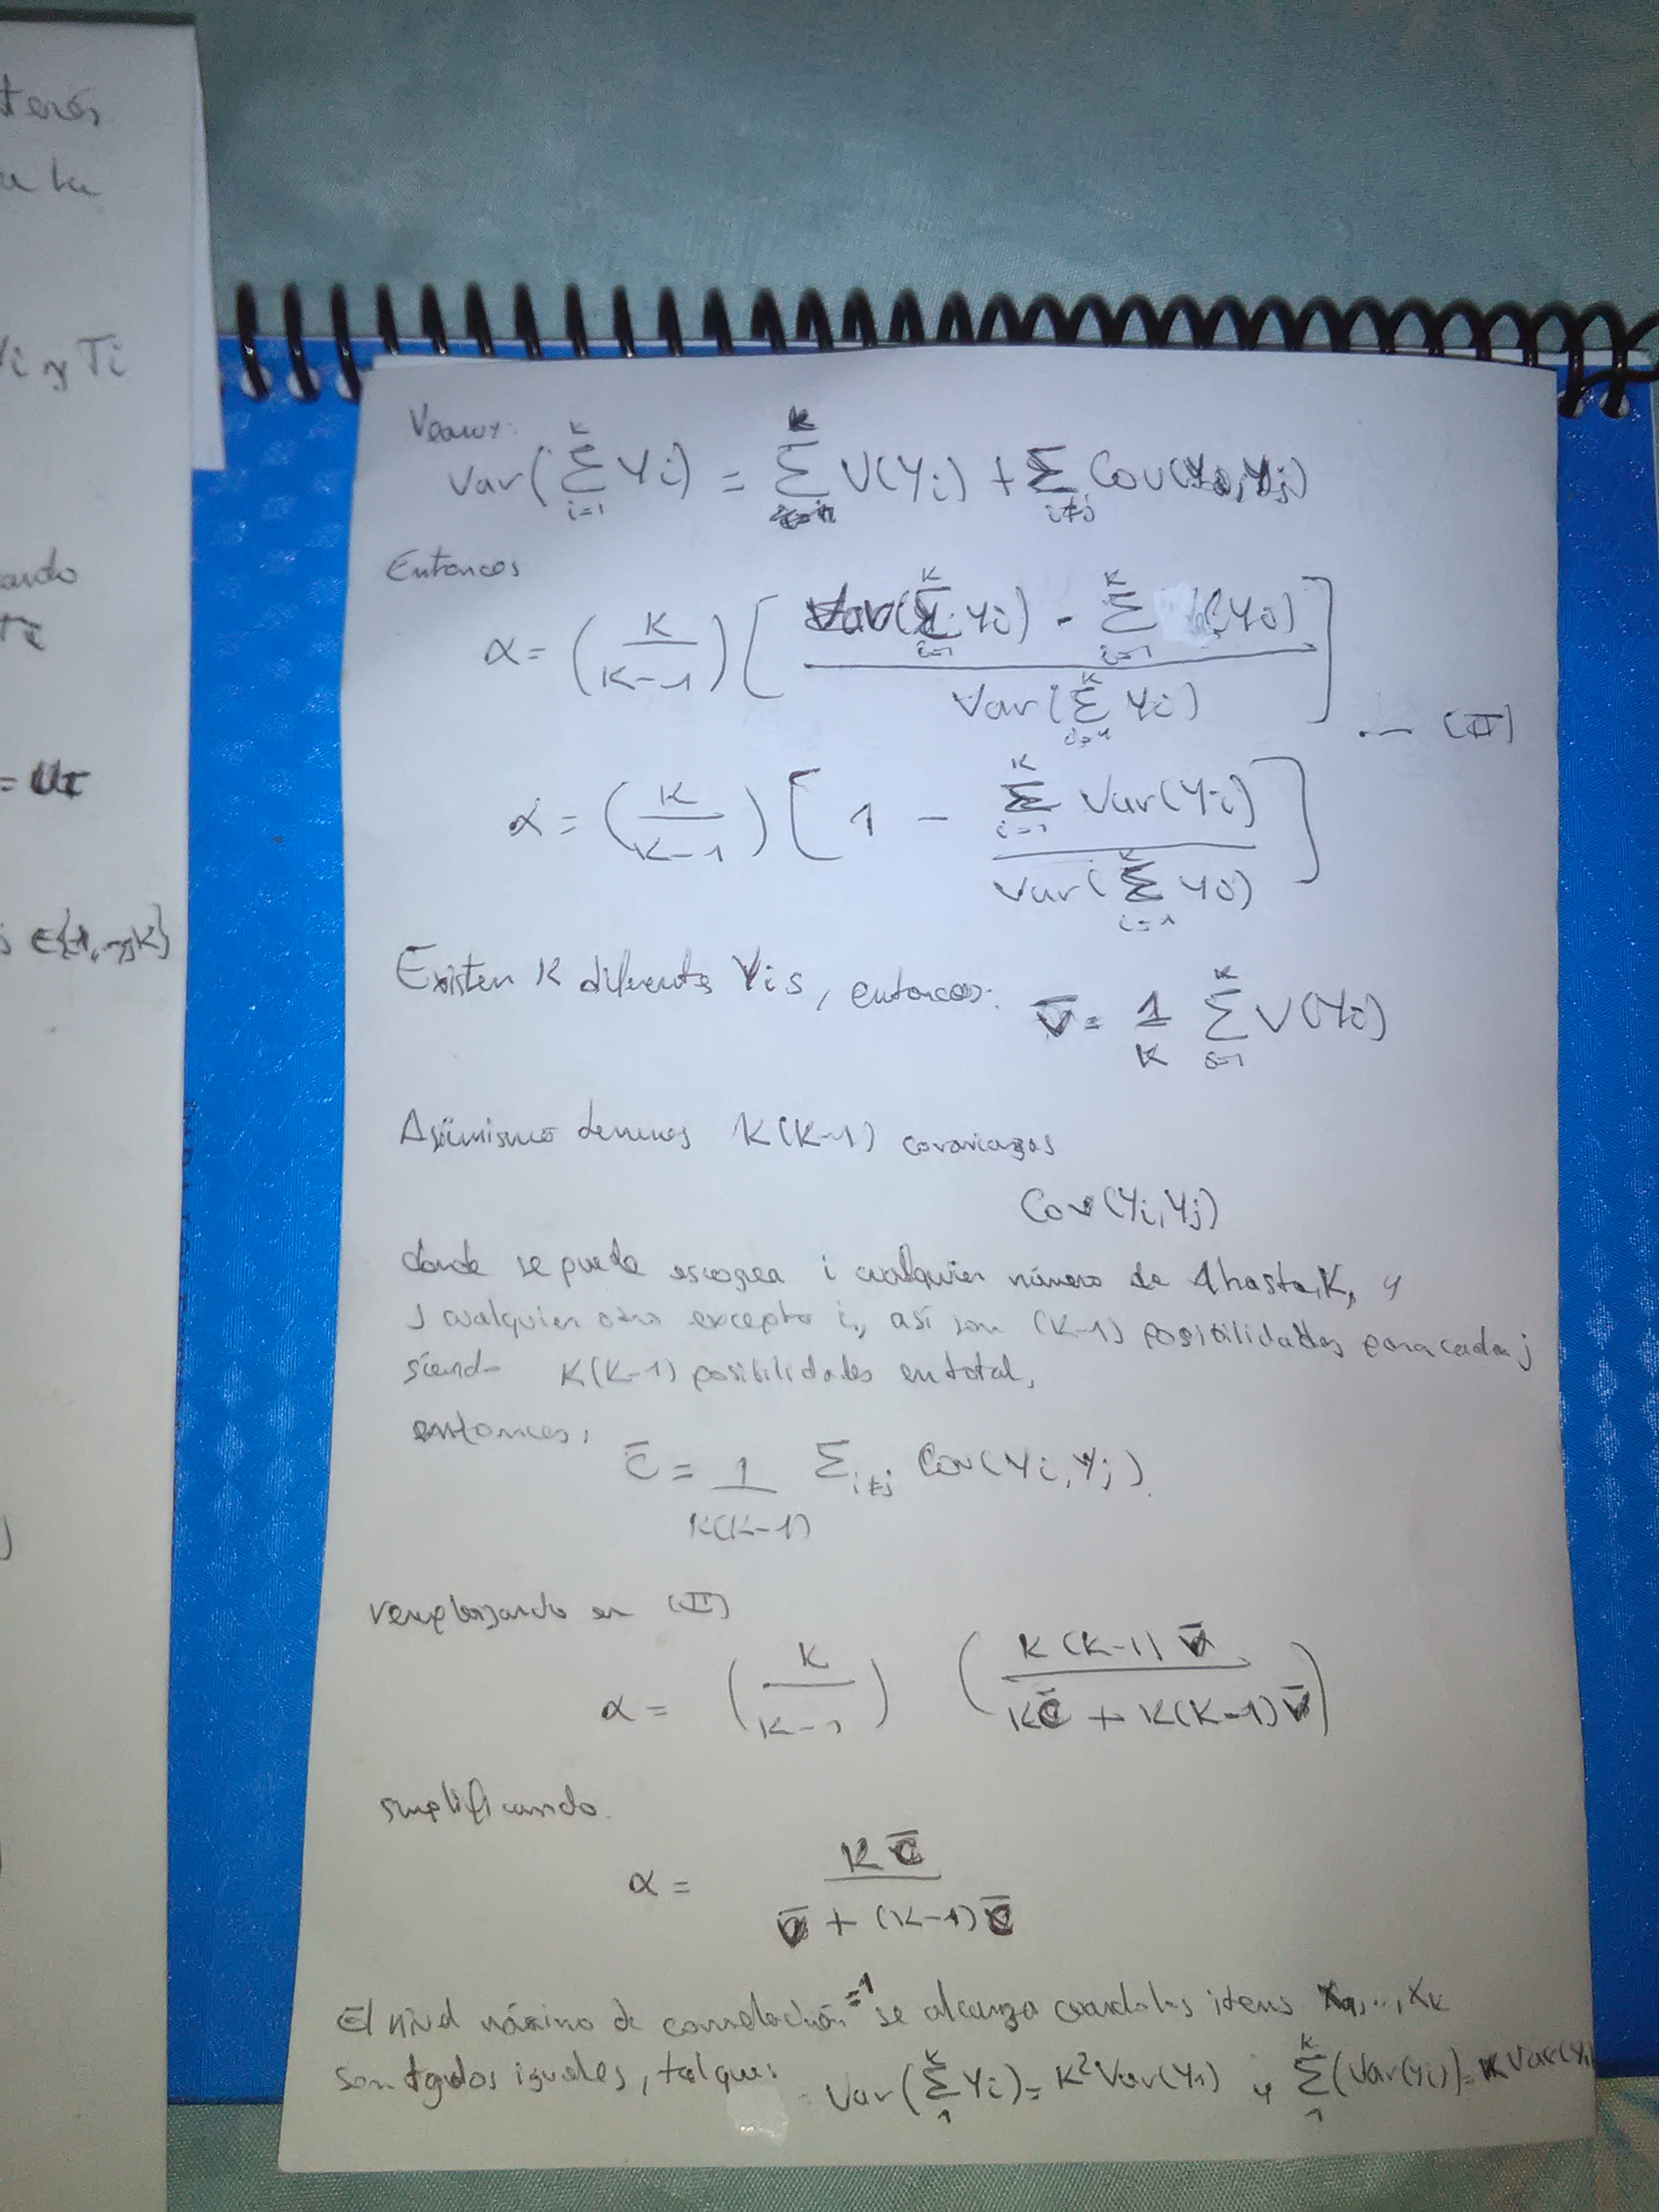 terés
a la
Vi y Ti
ando
= UI
s ∈{1,...,K}
Veamos:
Var(Σ_{i=1}^{K} Yi) = Σ_{i=1}^{K} V(Yi) + Σ_{i≠j} Cov(Yi,Yj)
Entonces
α = (K/(K-1)) [ (Var(Σ_{i=1}^{K} Yi) - Σ_{i=1}^{K} V(Yi)) / Var(Σ_{i=1}^{K} Yi) ] ... (II)
α = (K/(K-1)) [ 1 - Σ_{i=1}^{K} Var(Yi) / Var(Σ_{i=1}^{K} Yi) ]
Existen K diferentes Yis, entonces: V̄ = 1/K Σ_{i=1}^{K} V(Yi)
Asimismo tenemos K(K-1) covarianzas
Cov(Yi,Yj)
donde se puede escoger i cualquier número de 1 hasta K, y
j cualquier otro excepto i, así son (K-1) posibilidades para cada j
siendo K(K-1) posibilidades en total,
entonces,
C̄ = 1/(K(K-1)) Σ_{i≠j} Cov(Yi,Yj).
remplazando en (II)
α = (K/(K-1)) (K(K-1)V̄ / (KC̄ + K(K-1)V̄))
simplificando.
α = KC̄ / (V̄ + (K-1)C̄)
El nivel máximo de correlación =1 se alcanza cuando los items X1,..,XK
son todos iguales, tal que: Var(Σ_{1}^{K} Yi) = K²Var(Y1) y Σ_{1}^{K}(Var(Yi)) = K Var(Yi